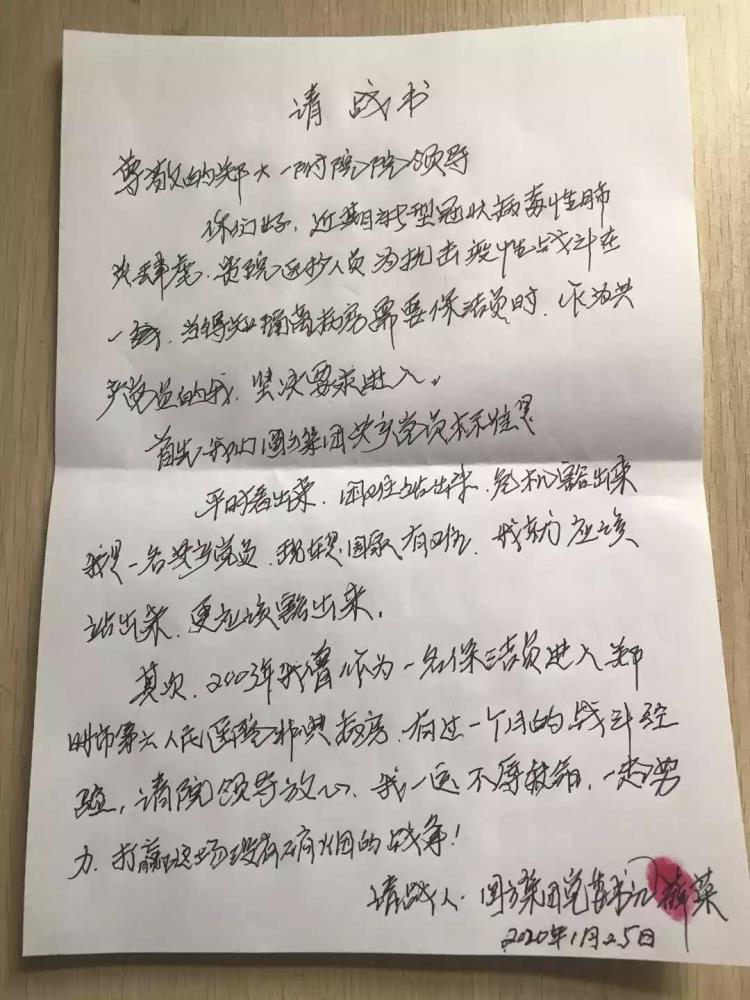 请战书
尊敬的郑大一附院院领导
你们好，近期新型冠状病毒性肺
炎肆虐，贵院医护人员为抗击疫情战斗在
一线，当得知隔离病房需要保洁员时，作为共
产党员的我，坚决要求进入。
首先我们圆方集团共产党员标准是
平时看出来，困难站出来，危机豁出来
我是一名共产党员，现在是国家有难，我就应该
站出来，更应该豁出来。
其次，2003年我曾作为一名保洁员进入郑
州市第六人民医院非典病房，有过一个月的战斗经
验，请院领导放心，我一定不辱使命，一起努
力，打赢这场没有硝烟的战争！
请战人：圆方集团党委书记 薛荣
2020年1月25日